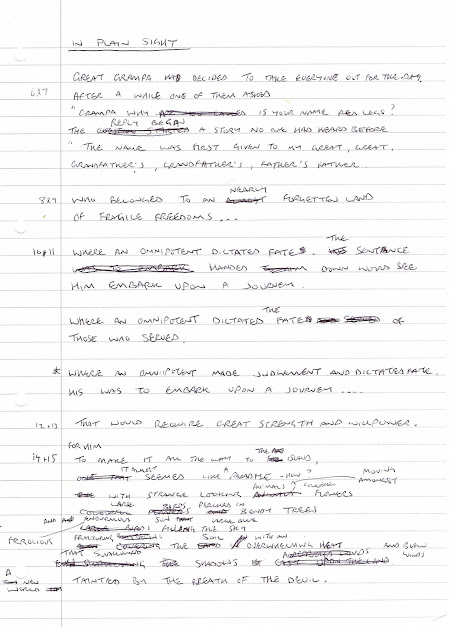 IN PLAIN SIGHT
GREAT GRAMPA HAD DECIDED TO TAKE EVERYONE OUT FOR THE DAY.
6&7 AFTER A WHILE ONE OF THEM ASKED
"GRAMPA WHY IS YOUR NAME RED LEGS?
REPLY BEGAN
THE A STORY NO ONE HAD HEARD BEFORE
"THE NAME WAS FIRST GIVEN TO MY GREAT, GREAT,
GRANDFATHER'S, GRANDFATHER'S, FATHER'S FATHER.
NEARLY
8&9 WHO BELONGED TO AN FORGOTTEN LAND
OF FRAGILE FREEDOMS ...
THE
10&11 WHERE AN OMNIPOTENT DICTATED FATE. SENTANCE
HANDED DOWN WOULD SEE
HIM EMBARK UPON A JOURNEY.
THE
WHERE AN OMNIPOTENT DICTATED FATE OF
THOSE WHO SERVED.
* WHERE AN OMNIPOTENT MADE JUDGMENT AND DICTATED FATE.
HIS WAS TO EMBARK UPON A JOURNEY ....
12&13 THAT WOULD REQUIRE GREAT STRENGTH AND WILLPOWER.
FOR HIM
14&15 TO MAKE IT ALL THE WAY TO THE ISLAND.
IT ALMOST A
SEEMED LIKE PARADISE - MOVING
ANIMALS AMONGST
WITH STRANGE LOOKING FLOWERS
LARGE BIRDS, PERCHED ON
BENDY TREES
AND ENOURMOUS SUN
FEROCIOUS FILLING THE SKY
SOIL WITH AN
OVERWHELMING HEAT AND BLOWN
THAT SWALLOWED WINDS
SHADOWS
A NEW WORLD TAINTED BY THE BREATH OF THE DEVIL.